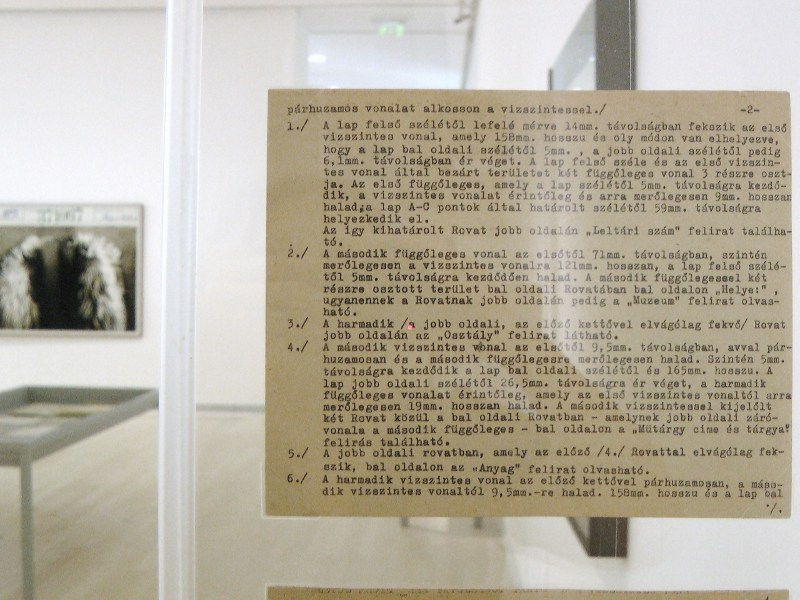 párhuzamos vonalat alkosson a vizszintessel./ -2-
1./ A lap felső szélétől lefelé mérve 14mm. távolságban fekszik az első
vizszintes vonal, amely 158mm. hosszu és oly módon van elhelyezve,
hogy a lap bal oldali szélétől 5mm. , a jobb oldali szélétől pedig
6,1mm. távolságban ér véget. A lap felső széle és az első vizszin-
tes vonal által bezárt területet két függőleges vonal 3 részre oszt-
ja. Az első függőleges, amely a lap szélétől 5mm. távolságra kezdő-
dik, a vizszintes vonalat érintőleg és arra merőlegesen 9mm. hosszan
haladga lap A-C pontok által határolt szélétől 59mm. távolságra
helyezkedik el.
Az igy kihatárolt Rovat jobb oldalán „Leltári szám" felirat találha-
tó.
2./ A második függőleges vonal az elsőtől 71mm. távolságban, szintén
merőlegesen a vizszintes vonalra 121mm. hosszan, a lap felső szélé-
től 5mm. távolságra kezdődően halad. A második függőlegessel két
részre osztott terület bal oldali Rovatában bal oldalon „Helye:" ,
ugyanennek a Rovatnak jobb oldalán pedig a „Muzeum" felirat olvas-
ható.
3./ A harmadik /a jobb oldali, az előző kettővel elvágólag fekvő/ Rovat
jobb oldalán az „Osztály" felirat látható.
4./ A második vizszintes vonal az elsőtől 9,5mm. távolságban, avval pár-
huzamosan és a második függőlegesre merőlegesen halad. Szintén 5mm.
távolságra kezdődik a lap bal oldali szélétől és 165mm. hosszu. A
lap jobb oldali szélétől 26,5mm. távolságra ér véget, a harmadik
függőleges vonalat érintőleg, amely az első vizszintes vonaltól arra
merőlegesen 19mm. hosszan halad. A második vizszintessel kijelölt
két Rovat közül a bal oldali Rovatban - amelynek jobb oldali záró-
vonala a második függőleges - bal oldalon a „Mütárgy cime és tárgya"
felirás található.
5./ A jobb oldali rovatban, amely az előző /4./ Rovattal elvágólag fek-
szik, bal oldalon az „Anyag" felirat olvasható.
6./ A harmadik vizszintes vonal az előző kettővel párhuzamosan, a máso-
dik vizszintes vonaltól 9,5mm.-re halad. 158mm. hosszu és a lap bal
./.